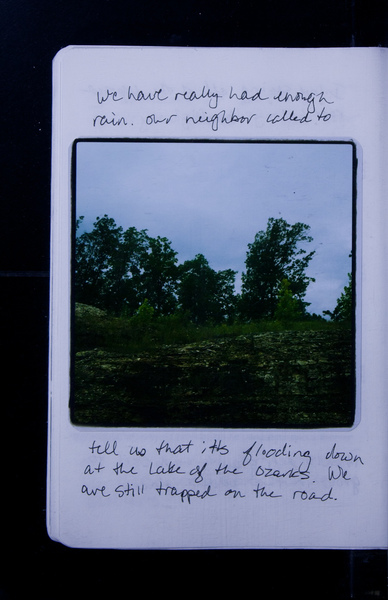 we have really had enough
rain. our neighbor called to
tell us that it's flooding down
at the Lake of the Ozarks. We
are still trapped on the road.